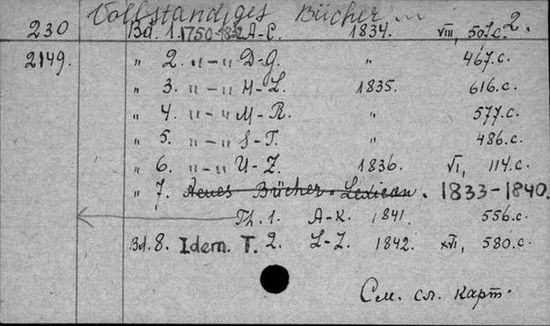 Vollständiges Bücher...
230 Bd. 1. 1750-1832 A-C. 1834. VIII, 507 c. 2.
2149. " 2. "-" D-G. " 467.c.
" 3. "-" H-L. 1835. 616.c.
" 4. "-" M-R. " 577.c.
" 5. "-" S-T. " 486.c.
" 6. "-" U-Z. 1836. VI, 114.c.
" 7. Neues Bücher-Lexicon. 1833-1840.
Th. 1. A-K. 1841. 556.c.
Bd. 8. Idem. T. 2. L-Z. 1842. XVI, 580.c.
См. сл. карт.